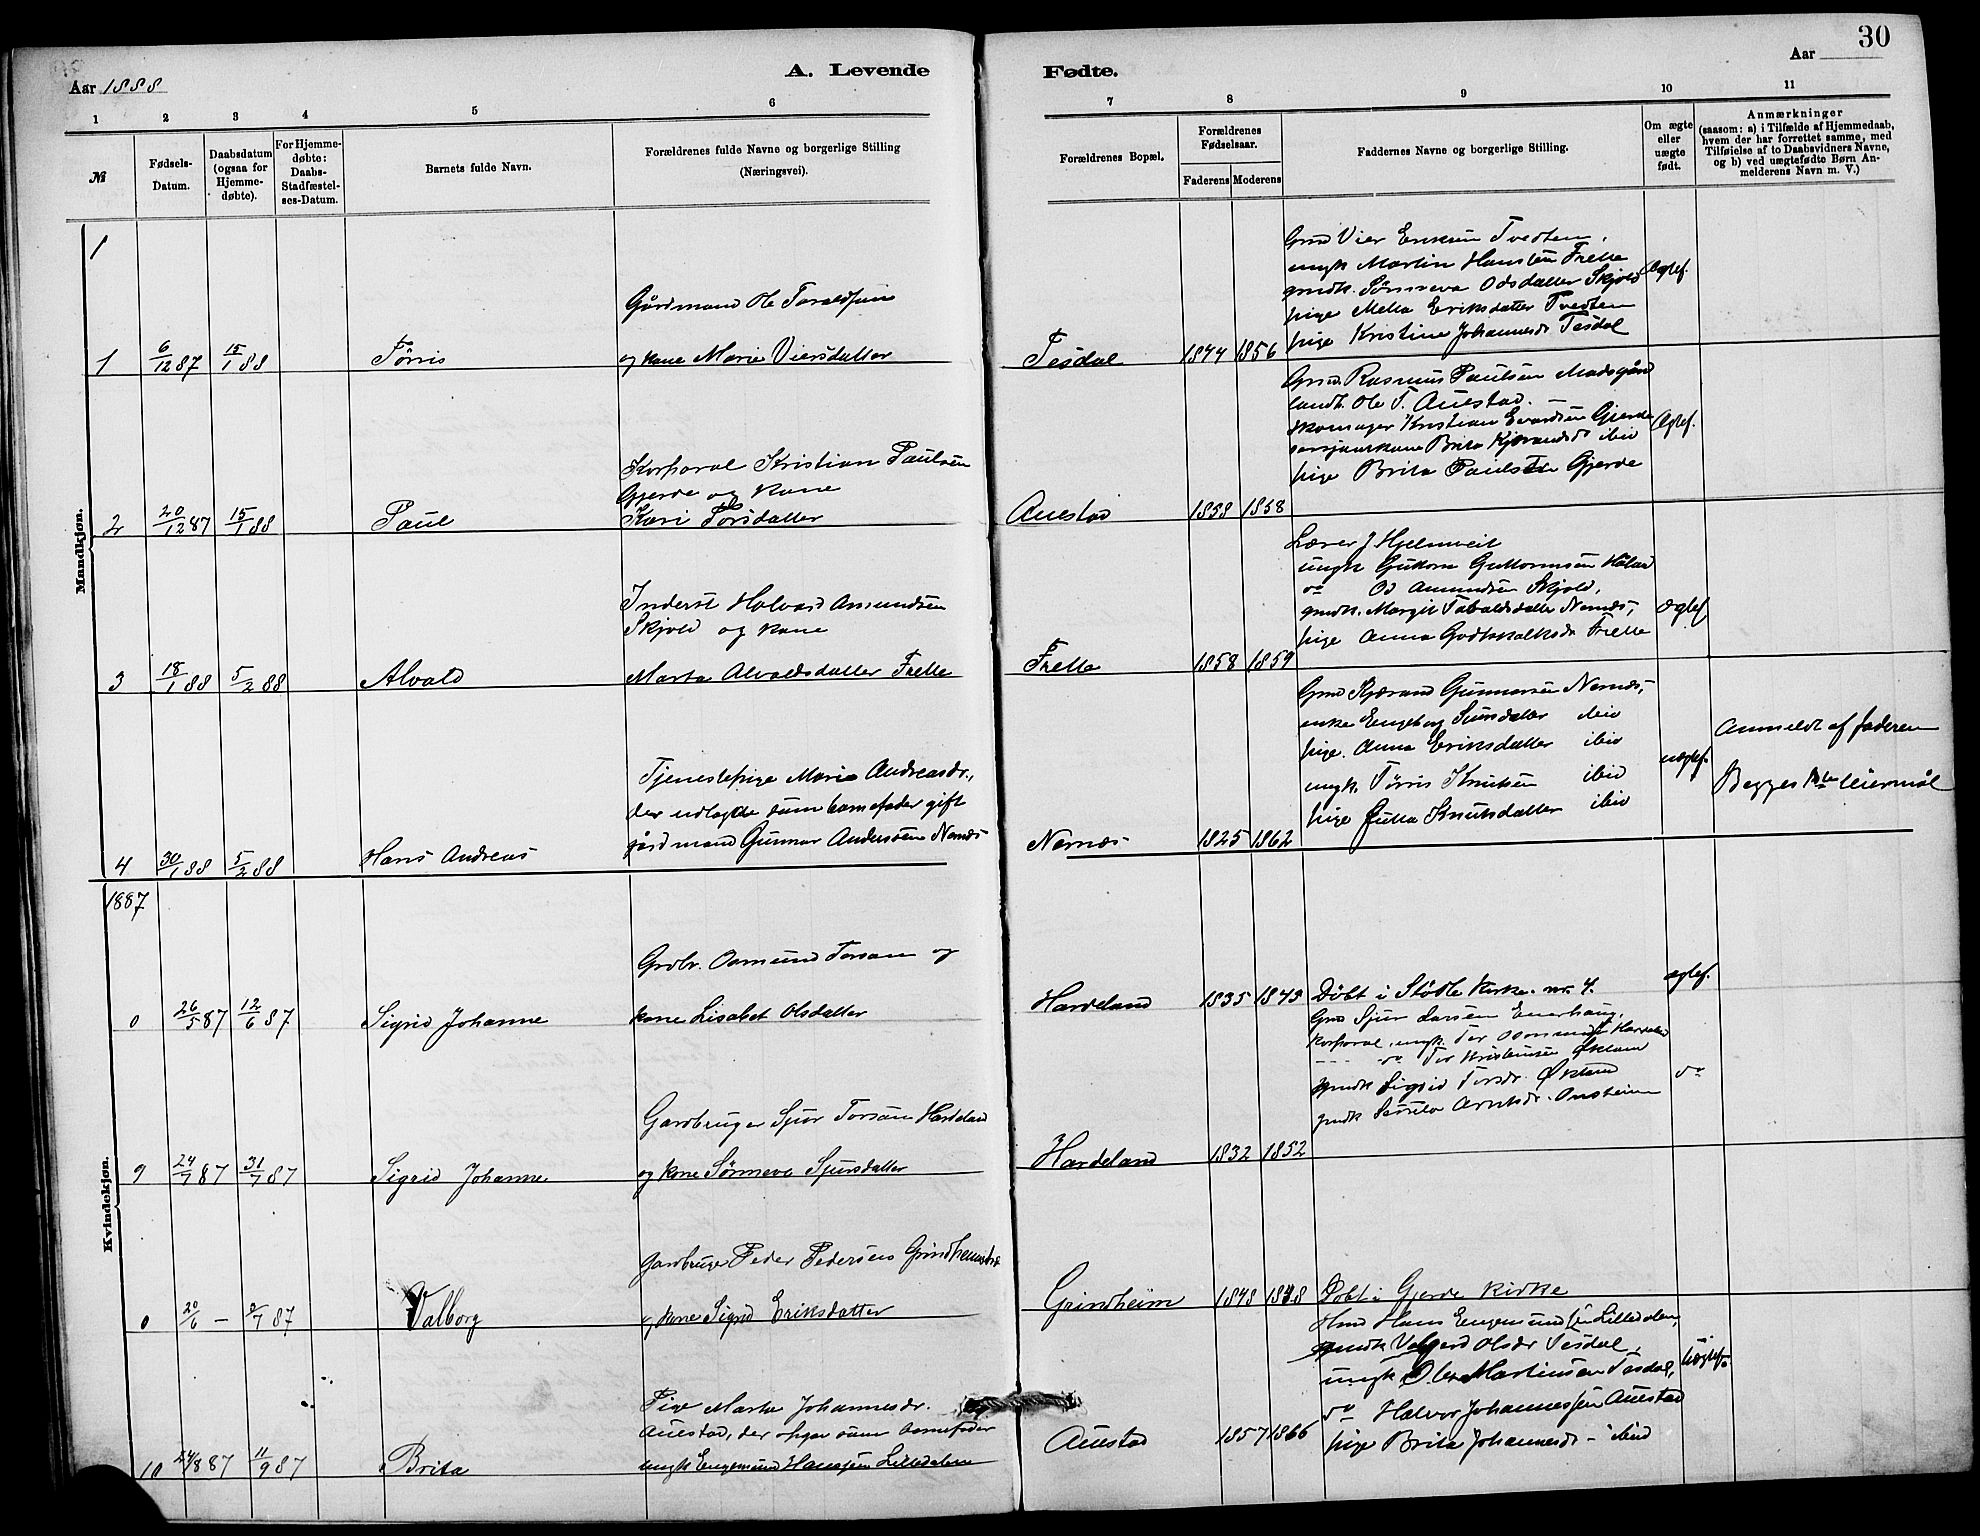 30
A. Levende
Fødte.
Aar 1888
Aar
1 2 3 4 5 6 7 8 9 10 11
№
Fødsels-
Datum.
Daabsdatum
(ogsaa for
Hjemme-
døbte).
For Hjemme-
døbte:
Daabs-
Stadfæstel-
ses-Datum.
Barnets fulde Navn.
Forældrenes fulde Navne og borgerlige Stilling
(Næringsvei).
Forældrenes Bopæl.
Forældrenes
Fødselsaar.
Faderens
Moderens
Faddernes Navne og borgerlige Stilling.
Om ægte
eller
uægte
født.
Anmærkninger
(saasom: a) i Tilfælde af Hjemmedaab,
hvem der har forrettet samme, med
Tilføielse af to Daabsvidners Navne,
og b) ved uægtefødte Børn An-
melderens Navn m. V.)
Mandkjøn.
1
1 6/12 87 15/1 88 Tørris
Gårdmand Ole Taraldsen
og kone Marie Viersdatter
Tesdal 1844 1856
Grmd Vier Eriksen Tvedten,
ungk Martin Hansen Frette
gmdk. Sønneva Odsdatter Skjold
pige Metta Eriksdatter Tvedten
pige Kristine Johannesd. Tesdal
Ægtef.
2 20/12 87 15/1 88 Paul
Korporal Kristian Paulsen
Gjerde og kone
Kari Torsdatter
Auestad 1858 1858
Grmd. Rasmus Paulsen
landh. Ole T. Auestad.
skomager Kristian Gjerde
Brita ibid
pige Brita Paulsd Gjerde
Ægtef.
3 18/1 88 5/2 88 Alvald
Inderst Halvard Amundsen
Skjold og kone
Marta Alvaldsdatter Frette
Frette 1858 1859
Lærer J Hjelmveit
ungk Guttorm Guttormsen
do Od Amundsen Skjold,
gmdk. Margit Nernæs,
pige Anna Godtskalksd Frette
ægtef
4 30/1 88 5/2 88 Hans Andreas
Tjenestepige Marie Andreasdr.,
der udlagde som barnefader gift
gårdmand Gunnar Andersen Nernæs
Nernæs 1825 1862
Grmd Kjærand Gunnarsen Nernæs,
enke Engeborg Siursdatter ibid
pige. Anna Eriksdatter ibid
ungk. Tørris Knutsen ibid
pige Jutta Knutsdatter ibid
uægtef.
Anmeldt af faderen
Begges 1ste leiermål
Kvindekjøn.
1887
0 26/5 87 12/6 87 Sigrid Johanne
Grdbr. Osmund Torsen og
kone Lisabet Olsdatter
Hardeland 1835 1843
Døbt i Stødle Kirke. nr. 4.
ægtef.
9 24/7 87 31/7 87 Sigrid Johanne
Gardbruger Sjur Torsen Hardeland
og kone Sønneva Sjursdatter
Hardeland 1832 1852
Grmd Sjur Larsen
Korporal, ungk. Tor Hardeland
do Tor Kristensen Økland
gmdk Sigrid Torsdr. Økland
gmdk
do
0 20/6 – 9/7 87 Valborg
Gardbruger Peder Pedersen Grindheim
og kone Sigrid Eriksdatter
Grindheim 1848 1848
Døbt i Gjerde Kirke
10 24/8 87 11/9 87 Brita
Pige Marta Johannesdr.
Auestad, der opgav som barnefader
ungk Engemund Hanssen Lilledalen
Auestad 1857 1866
Hmd Hans Engemundsen Lilledalen,
gmdk Valgerd Olsdr Tesdal,
ungk Ole Martinsen Tesdal,
do Halvor Johannessen Auestad
pige Brita Johannesd – ibid
Uægtef.